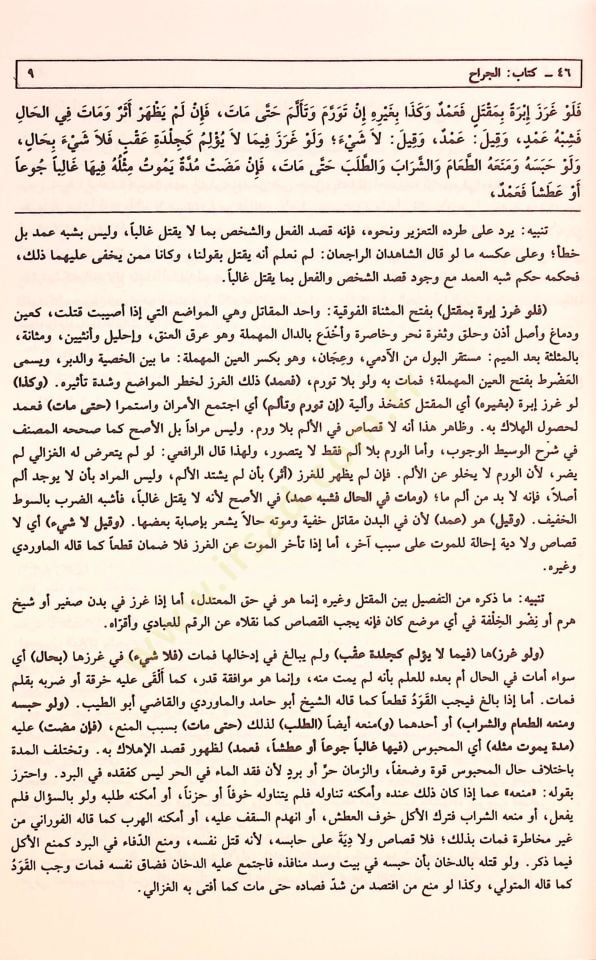 ٤٦ ــ كتاب: الجراح ٩
فَلَوْ غَرَزَ إبْرَةً بِمَقْتَلٍ فَعَمْدٌ وَكَذَا بِغَيْرِهِ إنْ تَوَرَّمَ وَتَأَلَّمَ حَتَّى مَاتَ، فَإِنْ لَمْ يَظْهَرْ أَثَرٌ وَمَاتَ فِي الْحَالِ
فَشِبْهُ عَمْدٍ، وَقِيلَ: عَمْدٌ، وَقِيلَ: لاَ شَيْءَ؛ وَلَوْ غَرَزَ فِيمَا لاَ يُؤْلِمُ كَجِلْدَةِ عَقِبٍ فَلاَ شَيْءَ بِحَالٍ،
وَلَوْ حَبَسَهُ وَمَنَعَهُ الطَّعَامَ وَالشَّرَابَ وَالطَّلَبَ حَتَّى مَاتَ، فَإِنْ مَضَتْ مُدَّةٌ يَمُوتُ مِثْلُهُ فِيهَا غَالِباً جُوعاً
أَوْ عَطَشاً فَعَمْدٌ،
تنبيه: يرد على طرده التعزير ونحوه، فإنه قصد الفعل والشخص بما لا يقتل غالباً، وليس بشبه عمد بل
خطأ؛ وعلى عكسه ما لو قال الشاهدان الراجعان: لم نعلم أنه يقتل بقولنا، وكانا ممن يخفى عليهما ذلك،
فحكمه حكم شبه العمد مع وجود قصد الشخص والفعل بما يقتل غالباً.
(فلو غرز إبرة بمقتل) بفتح المثناة الفوقية: واحد المقاتل وهي المواضع التي إذا أصيبت قتلت، كعين
ودماغ وأصل أذن وحلق وثغرة نحر وخاصرة وأَخْدَع بالدال المهملة وهو عرق العنق، وإحليل وأنثيين، ومثانة،
بالمثلثة بعد الميم: مستقر البول من الآدمي، وعِجَان، وهو بكسر العين المهملة: ما بين الخصية والدبر، ويسمى
العَضْرط بفتح العين المهملة؛ فمات به ولو بلا تورم، (فعمد) ذلك الغرز لخطر المواضع وشدة تأثيره. (وكذا)
لو غرز إبرة (بغيره) أي المقتل كفخذ وألية (إن تورم وتألم) أي اجتمع الأمران واستمرا (حتى مات) فعمد
لحصول الهلاك به. وظاهر هذا أنه لا قصاص في الألم بلا ورم. وليس مراداً بل الأصح كما صححه المصنف
في شرح الوسيط الوجوب، وأما الورم بلا ألم فقط لا يتصور، ولهذا قال الرافعي: لو لم يتعرض له الغزالي لم
يضر، لأن الورم لا يخلو عن الألم. فإن لم يظهر للغرز (أثر) بأن لم يشتد الألم، وليس المراد بأن لا يوجد ألم
أصلاً، فإنه لا بد من ألم ما؛ (ومات في الحال فشبه عمد) في الأصح لأنه لا يقتل غالباً، فأشبه الضرب بالسوط
الخفيف. (وقيل) هو (عمد) لأن في البدن مقاتل خفية وموته حالاً يشعر بإصابة بعضها. (وقيل لا شيء) أي لا
قصاص ولا دية إحالة للموت على سبب آخر، أما إذا تأخر الموت عن الغرز فلا ضمان قطعاً كما قاله الماوردي
وغيره.
تنبيه: ما ذكره من التفصيل بين المقتل وغيره إنما هو في حق المعتدل، أما إذا غرز في بدن صغير أو شيخ
هرم أو نِضْو الخِلْقة في أي موضع كان فإنه يجب القصاص كما نقلاه عن الرقم للعبادي وأقرّاه.
(ولو غرز)ها (فيما لا يؤلم كجلدة عقب) ولم يبالغ في إدخالها فمات (فلا شيء) في غرزها (بحال) أي
سواء أمات في الحال أم بعده للعلم بأنه لم يمت منه، وإنما هو موافقة قدر، كما أَلْقَى عليه خرقة أو ضربه بقلم
فمات. أما إذا بالغ فيجب القَوَدُ قطعاً كما قاله الشيخ أبو حامد والماوردي والقاضي أبو الطيب. (ولو حبسه
ومنعه الطعام والشراب) أو أحدهما (و)منعه أيضاً (الطلب) لذلك (حتى مات) بسبب المنع، (فإن مضت) عليه
(مدة يموت مثله) أي المحبوس (فيها غالباً جوعاً أو عطشاً، فعمد) لظهور قصد الإهلاك به. وتختلف المدة
باختلاف حال المحبوس قوة وضعفاً، والزمان حرّ أو بردٍ لأن فقد الماء في الحر ليس كفقده في البرد. واحترز
بقوله: «منعه» عما إذا كان ذلك عنده وأمكنه تناوله فلم يتناوله خوفاً أو حزناً، أو أمكنه طلبه ولو بالسؤال فلم
يفعل، أو منعه الشراب فترك الأكل خوف العطش، أو انهدم السقف عليه، أو أمكنه الهرب كما قاله الفوراني من
غير مخاطرة فمات بذلك؛ فلا قصاص ولا دِيَةَ على حابسه، لأنه قتل نفسه، ومنع الدِّفاء في البرد كمنع الأكل
فيما ذكر. ولو قتله بالدخان بأن حبسه في بيت وسد منافذه فاجتمع عليه الدخان فضاق نفسه فمات وجب القَوَدُ
كما قاله المتولي، وكذا لو منع من افتصد من شدّ فصاده حتى مات كما أفتى به الغزالي.